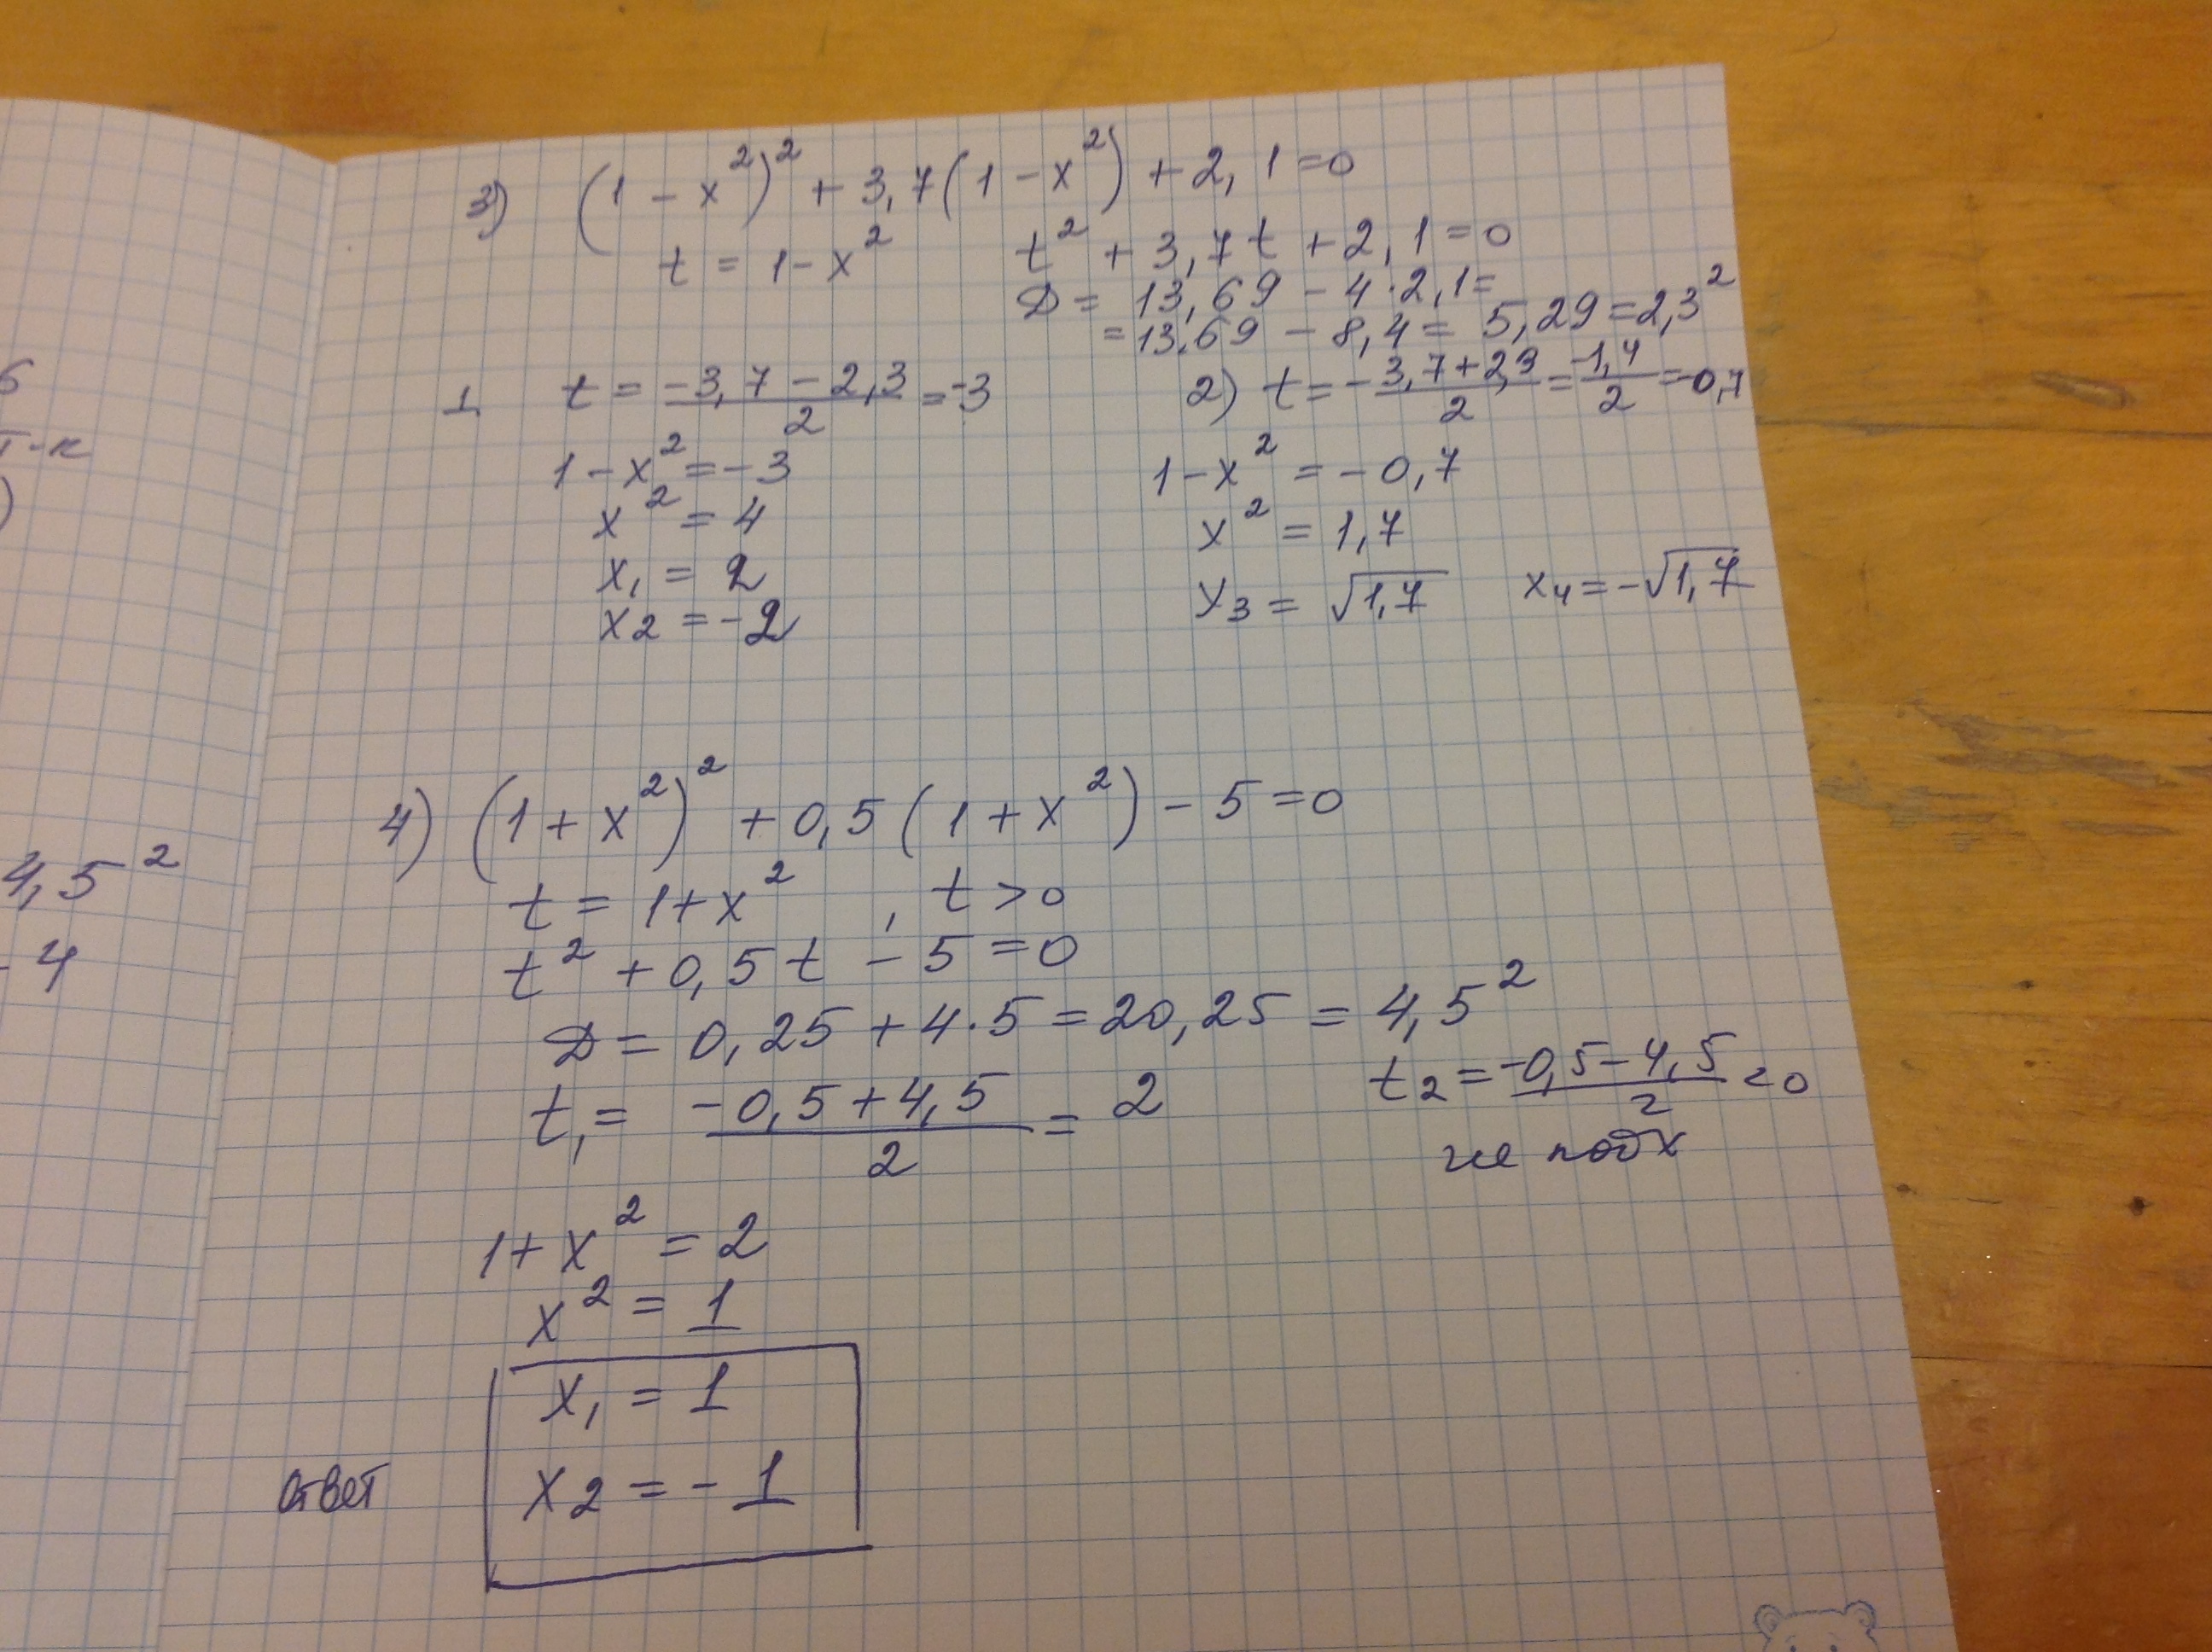 5
-к
)
4,5²
- 4
3) (1 - x²)² + 3,7(1 - x²) + 2,1 = 0
t = 1 - x² t² + 3,7t + 2,1 = 0
D = 13,69 - 4·2,1 =
= 13,69 - 8,4 = 5,29 = 2,3²
1. t = (-3,7 - 2,3)/2 = -3 2) t = -3,7+2,3/2 = -1,4/2 = -0,7
1 - x² = -3 1 - x² = -0,7
x² = 4 x² = 1,7
x₁ = 2 x₃ = √1,7 x₄ = -√1,7
x₂ = -2
4) (1 + x²)² + 0,5(1 + x²) - 5 = 0
t = 1 + x² , t > 0
t² + 0,5t - 5 = 0
D = 0,25 + 4·5 = 20,25 = 4,5²
t₁ = -0,5 + 4,5/2 = 2 t₂ = -0,5 - 4,5/2 < 0
не подх
1 + x² = 2
x² = 1
x₁ = 1
Ответ x₂ = -1